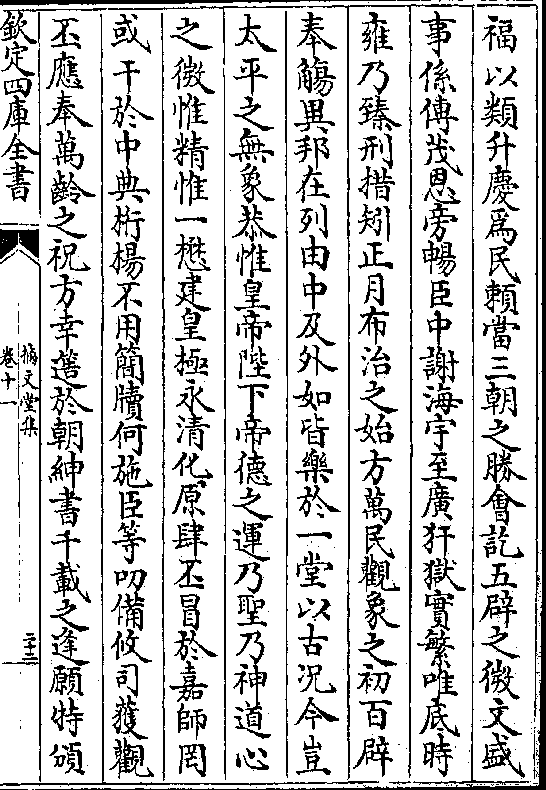 福以類升慶為民賴當三朝之勝會訖五辟之微文盛
事係傳茂恩旁暢臣中謝海宇至廣犴獄實繁唯底時
雍乃臻刑措矧正月布治之始方萬民觀象之初百辟
奉觴異邦在列由中及外如皆樂於一堂以古況今豈
太平之無象恭惟皇帝陛下帝德之運乃聖乃神道心
之微惟精惟一懋建皇極永清化原肆丕冒於嘉師罔
或干於中典桁楊不用簡牘何施臣等叨備攸司獲觀
丕應奉萬齡之祝方幸簉於朝紳書千載之逢願特頒
欽定四庫全書
摛文堂集
卷十一
二十二